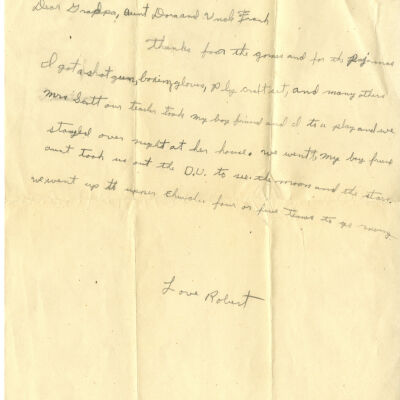 Dear Grandpa, Aunt Dora and Uncle Frank
Thanks foor the games and for the Pajamas
I got a shot gun, boxing gloves, craft set, and many others
Mrs Scott our teacher took my boy friend and I to a play and we
stayed over night at her house. we went, my boy friend
aunt took us out the D.U. to see the moon and the stars.
we went up to four or five times to go
Love Robert